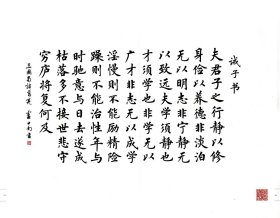 诫子书
夫君子之行静以修
身俭以养德非淡泊
无以明志非宁静无
以致远夫学须静也
才须学也非学无以
广才非志无以成学
淫慢则不能励精险
躁则不能治性年与
时驰意与日去遂成
枯落多不接世悲守
穷庐将复何及
三国蜀诸葛亮